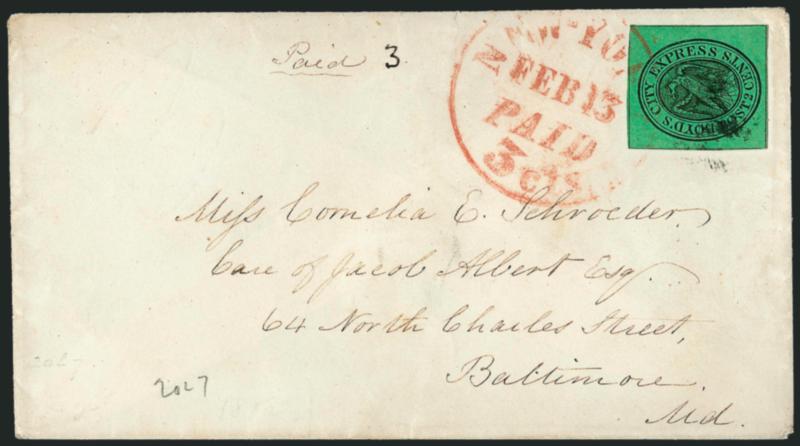 Paid 3
NEW-YORK
FEB 13
PAID
3 cts
BOYD'S CITY EXPRESS POST. 2 CENTS
Miss Cornelia E. Schroeder,
Care of Jacob Albert Esq.
64 North Charles Street,
Baltimore.
Md.
2027
2027